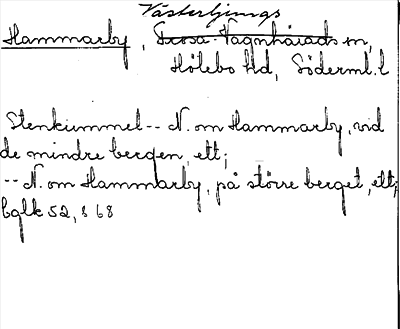 Västerljungs
Hammarby, Trosa-Vagnhärads sn,
Hölebo Hd, Söderml. l
Stenkummel -- N. om Hammarby, vid
de mindre bergen, ett;
-- N. om Hammarby, på större berget, ett;
bglk 52, s 68